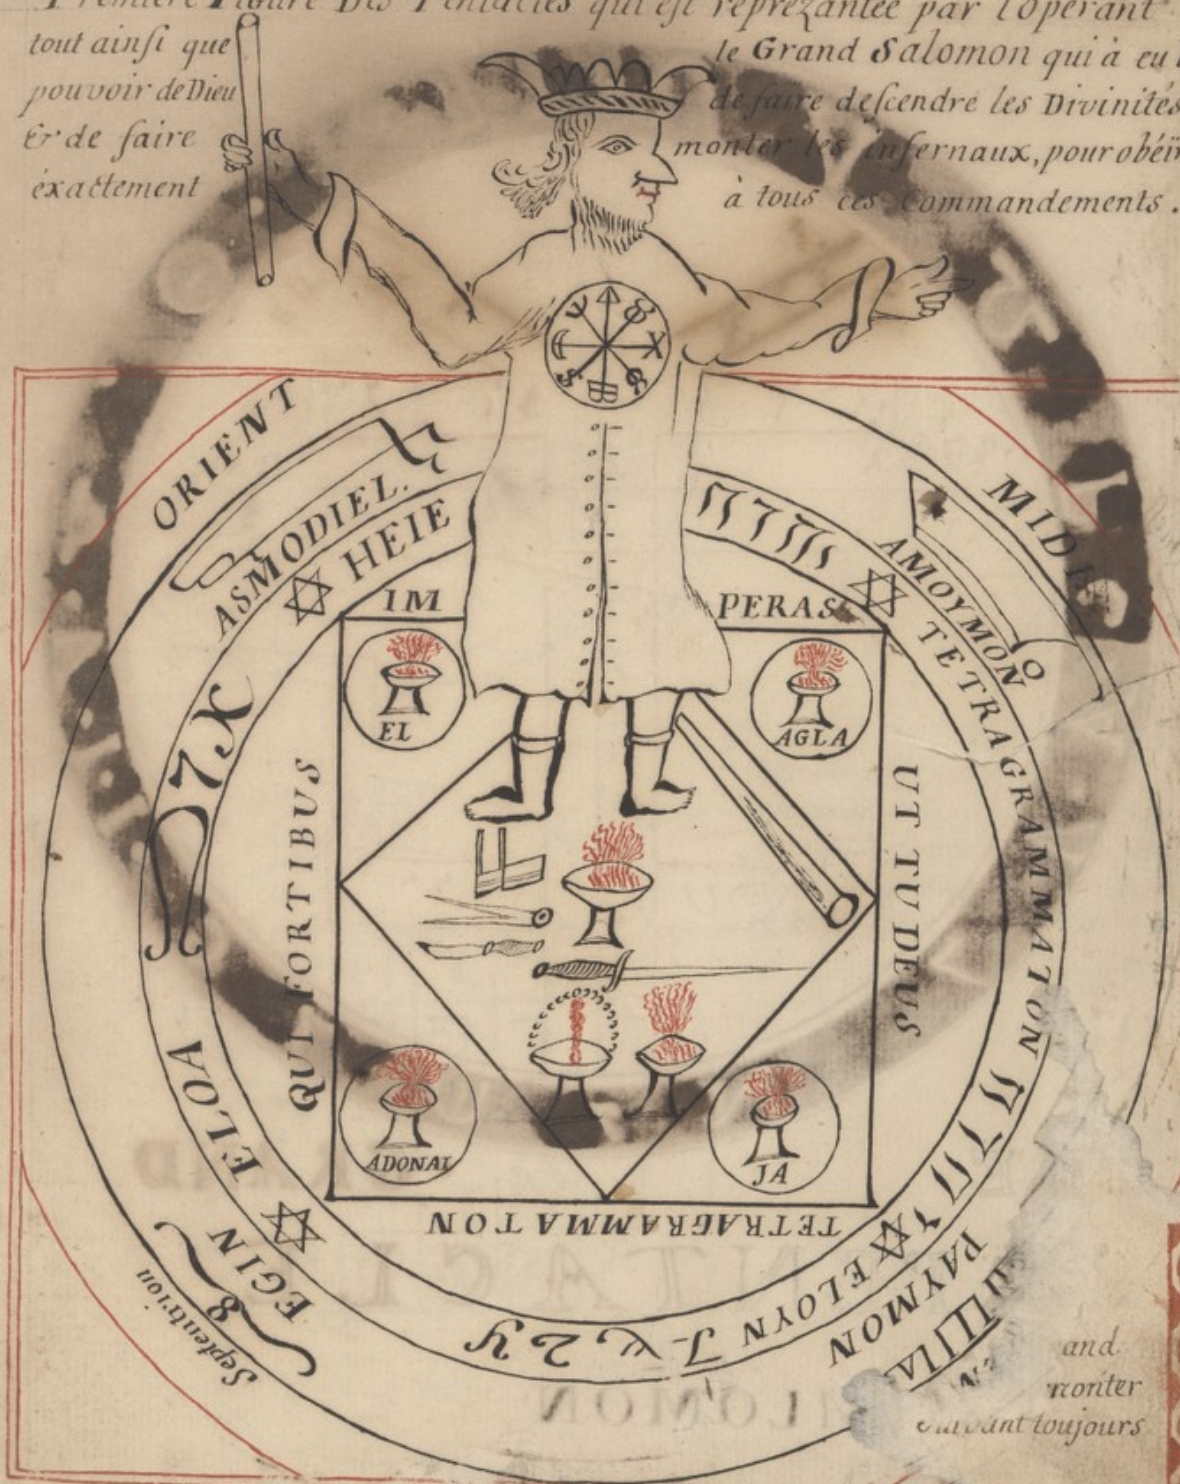 Premiere Figure Des Pentacles qui est reprezantée par l'operant
tout ainsi que le Grand Salomon qui à eu
pouvoir de Dieu de faire descendre les Divinités
Et de faire monter les infernaux, pour obéir
éxactement à tous ces Commandements.
ORIENT
MIDI
ASMODIEL.
AMOYMON
HEIE
TETRAGRAMMATON
IM PERAS
EL
AGLA
QUI FORTIBUS
UT TUDEUS
ELOA
ADONAI
JA
TETRAGRAMMATON
EGIN
Septentrion
ELOYN
PAYMON
and
monter
toujours